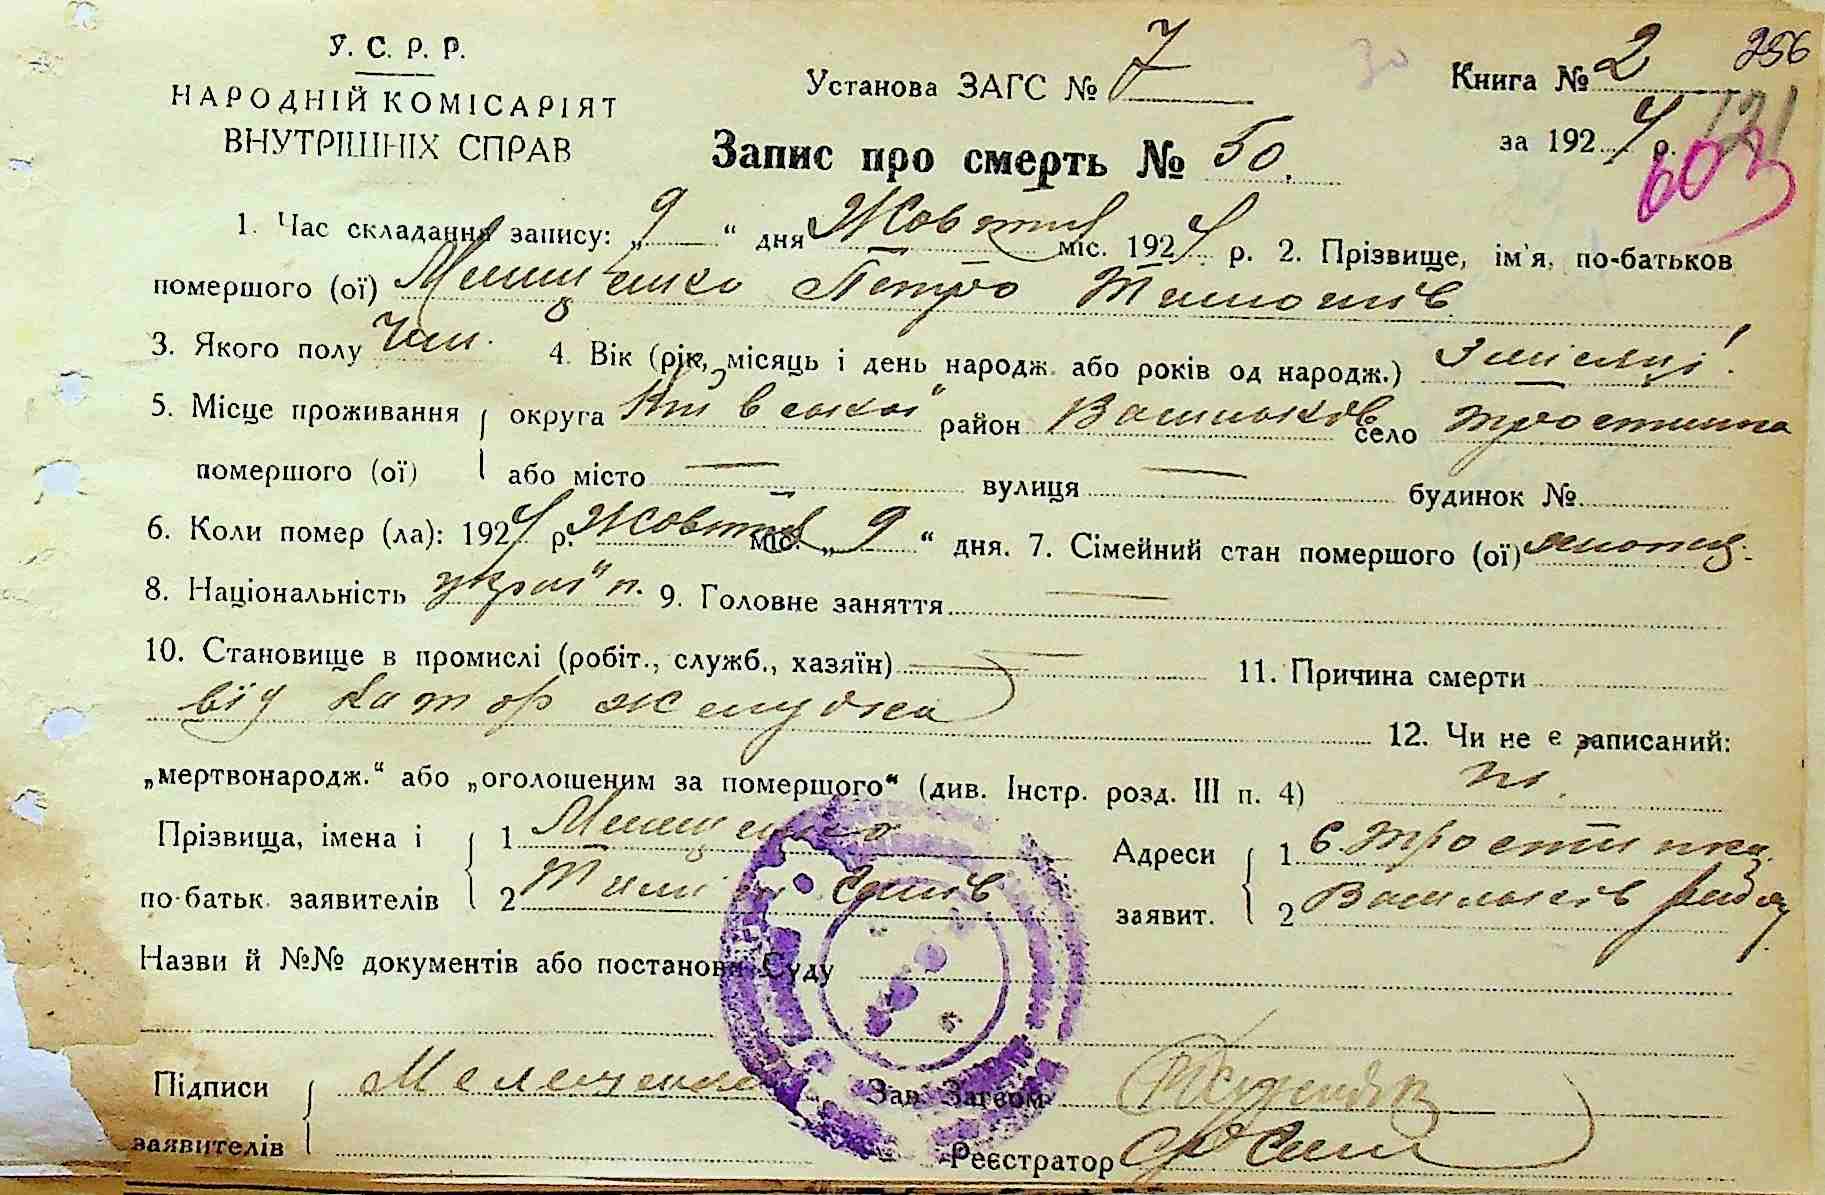 У. С. Р. Р.
НАРОДНІЙ КОМІСАРІЯТ
ВНУТРІШНІХ СПРАВ
Установа ЗАГС № 7
Книга № 2 256
за 192 4 р. 121
603
Запис про смерть № 50.
1. Час складання запису: „ 9 “ дня Жовтня міс. 192 4 р. 2. Прізвище, ім'я, по-батьков
помершого (ої) Мелещенко Петро
3. Якого полу Чол. 4. Вік (рік, місяць і день народж. або років од народж.) 3 місяці
5. Місце проживання округа Київської район Васильків село Тростинка
помершого (ої) або місто — вулиця — будинок №
6. Коли помер (ла): 192 4 р. Жовтня міс. „ 9 “ дня. 7. Сімейний стан помершого (ої)
8. Національність україн. 9. Головне заняття —
10. Становище в промислі (робіт., служб., хазяїн) — 11. Причина смерти
від катар желудка
12. Чи не є записаний:
„мертвонародж.“ або „оголошеним за помершого“ (див. Інстр. розд. III п. 4) ні.
Прізвища, імена і 1 Мелещенко Адреси 1 С. Тростинка
по-батьк. заявителів 2 заявит. 2 Васильків район
Назви й №№ документів або постанови Суду
Підписи Мелещенко Зав. Загсом
заявителів Реєстратор